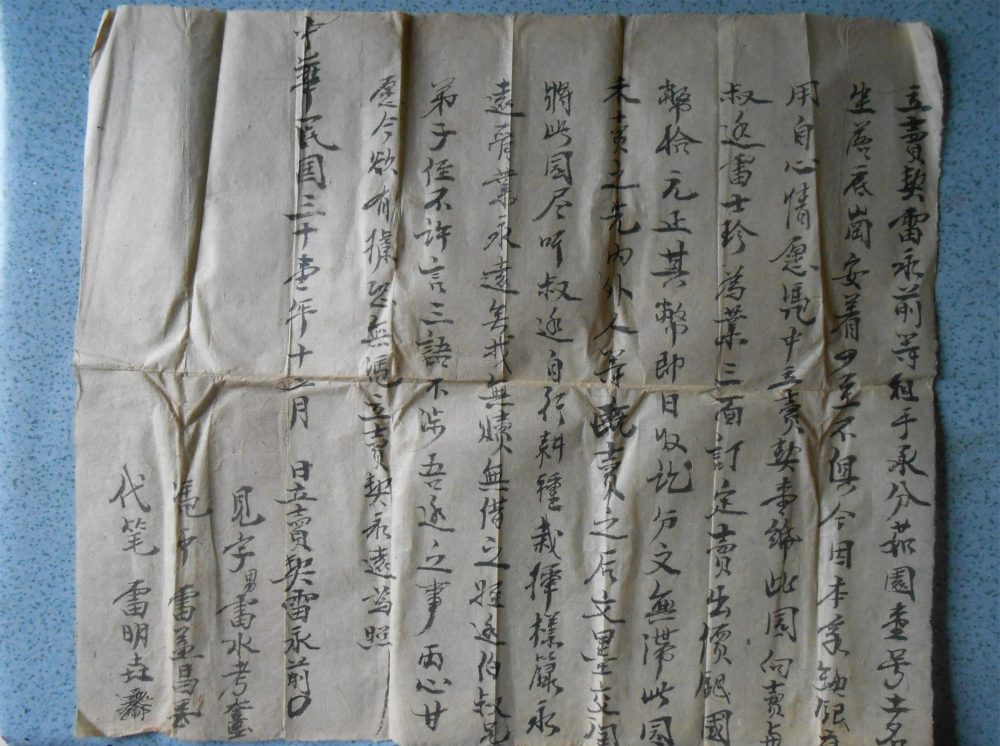 立賣契雷永前等祖手承分菘園壹号土名
生 底崗安着四至不俱今因本家缺銀
用自心情愿憑中立賣契壹紙此園向賣与
叔边雷士珍為業三面訂定賣出價銀國
幣拾元正其幣即日收訖分文無滞此園
未賣之先内外人等既賣之后文墨交関
將此園尽听叔边自行耕種栽插樣籙永
遠管業永遠無找無贖無借之理边伯叔兄
弟子侄不許言三語不涉吾边之事両心甘
愿今欲有據恐無憑立賣契永遠為照
中華民国三十壹年十二月 日立賣契雷永前
見字男雷水考
憑中雷 昌
代笔 雷明